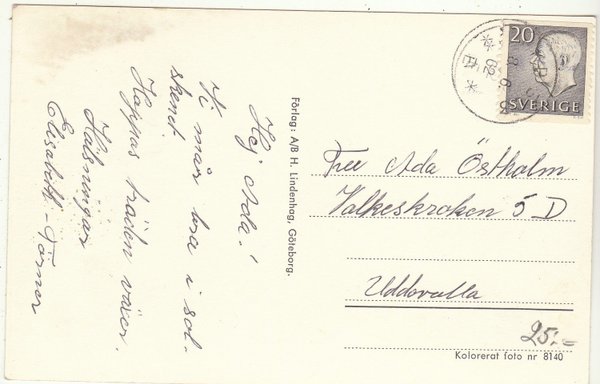 Hej Ada!
Vi mår bra i sol-
skenet.
Hoppas träden växer.
Hälsningar
Elisabeth - Törner
Förlag: A/B H. Lindenhag, Göteborg.
20
SVERIGE
Ada Östholm
Valkeskroken 5 D
Uddevalla
25:-
Kolorerat foto nr 8140